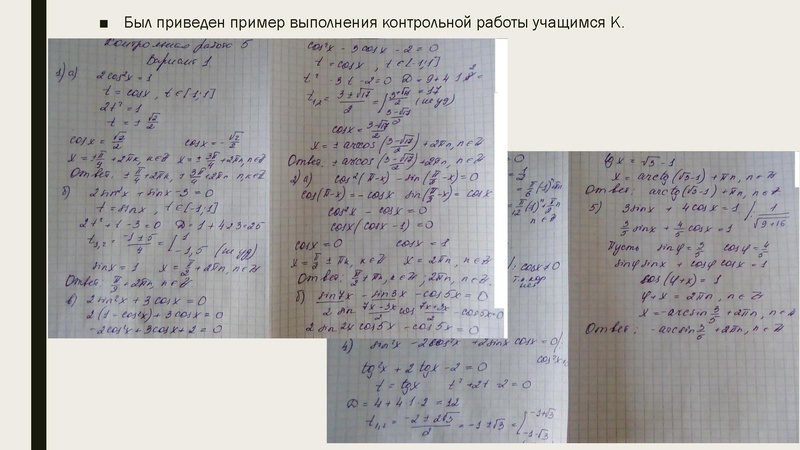 Был приведен пример выполнения контрольной работы учащимся К.
Контрольная работа 5
Вариант 1
1) а) 2cos²x = 1
t = cosx, t ∈ [-1;1]
2t² = 1
t = ± √2/2
cosx = √2/2 cosx = -√2/2
x = ± π/4 + 2πn, n∈Z x = ± 3π/4 + 2πn, n∈Z
Ответ: ± π/4 + 2πn, ± 3π/4 + 2πn, n∈Z
б) 2sin²x + sinx - 3 = 0
t = sinx, t ∈ [-1;1]
2t² + t - 3 = 0 D = 1 + 4·2·3 = 25
t₁,₂ = (-1 ± 5)/4 = [1
-1,5 (не уд)
sinx = 1 x = π/2 + 2πn, n∈Z
Ответ: π/2 + 2πn, n∈Z
в) 2sin²x + 3cosx = 0
2(1 - cos²x) + 3cosx = 0
-2cos²x + 3cosx + 2 = 0
cos²x - 3cosx - 2 = 0
t = cosx, t ∈ [-1;1]
t² - 3t - 2 = 0 D = 9 + 4·1·2 =
= 17
t₁,₂ = (3 ± √17)/2 = [(3+√17)/2 (не уд)
(3-√17)/2
cosx = (3-√17)/2
x = ± arccos((3-√17)/2) + 2πn, n∈Z
Ответ: ± arccos((3-√17)/2) + 2πn, n∈Z
2) а) cos²(π-x) - sin(π/2 - x) = 0
cos(π-x) = -cosx sin(π/2 - x) = cosx
cos²x - cosx = 0
cosx(cosx - 1) = 0
cosx = 0 cosx = 1
x = π/2 ± πn, n∈Z x = 2πn, n∈Z
Ответ: π/2 + πn, n∈Z, 2πn, n∈Z
б) sin7x - sin3x - cos5x = 0
2 sin (7x-3x)/2 cos (7x+3x)/2 - cos5x = 0
2 sin2x cos5x - cos5x = 0
4) sin²x - 2cos²x + 2sinx cosx = 0 |:
cos²x
tg²x + 2tgx - 2 = 0
t = tgx t² + 2t - 2 = 0
D = 4 + 4·1·2 = 12
t₁,₂ = (-2 ± 2√3)/2 = -1 ± √3 = [-1+√3
-1-√3
tgx = √3 - 1
x = arctg(√3-1) + πn, n∈Z
Ответ: arctg(√3-1) + πn, n∈Z
5) 3sinx + 4cosx = 1 |: 1/√(9+16)
3/5 sinx + 4/5 cosx = 1
Пусть sinφ = 3/5 cosφ = 4/5
sinφ sinx + cosφ cosx = 1
cos(φ+x) = 1
φ + x = 2πn, n∈Z
x = -arcsin 3/5 + 2πn, n∈Z
Ответ: -arcsin 3/5 + 2πn, n∈Z